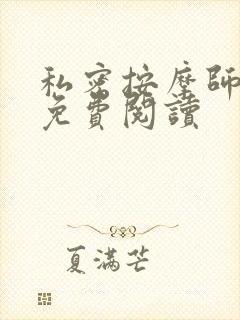 私密按摩師
免費閱讀
夏滿芒